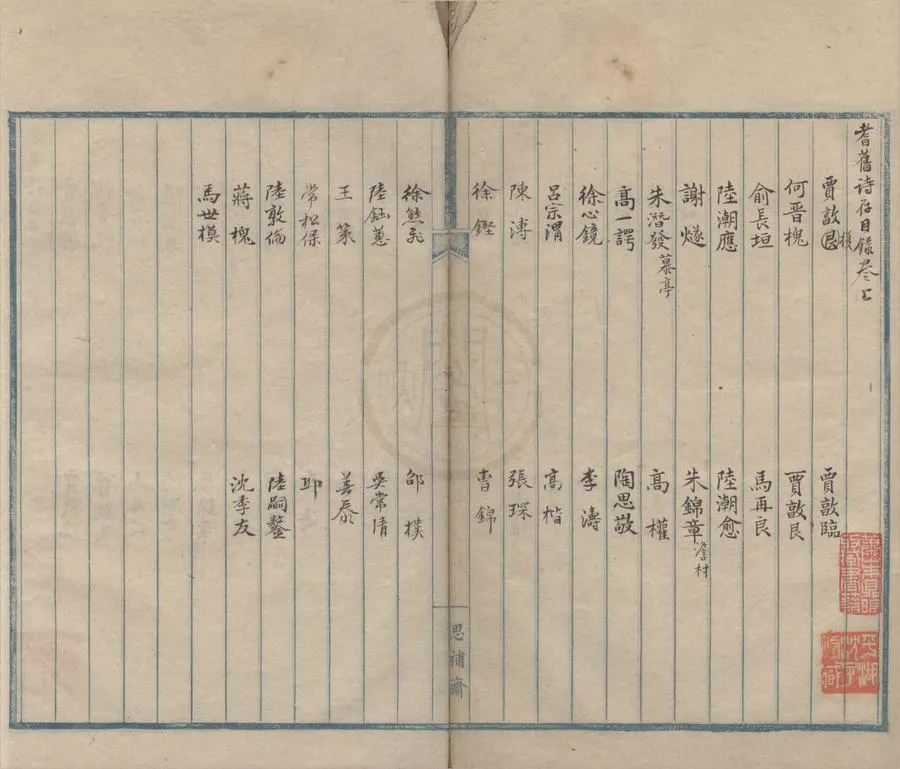 耆舊诗存目録卷上
賈敦艮 賈敦臨
何晋槐 賈敦艮
俞長垣 馬再良
陸潮應 陸潮愈
謝燧 朱錦章 澹村
朱潛發 慕亭 高權
高一諤 陶思敬
徐心鏡 李濤
呂宗渭 高楷
陳漙 張琛
徐鏗 曹錦
徐熊飛 邰樸
陸鈺蕙 吳常清
王策 善泰
常松保
陸敦倫 陸嗣鰲
蔣槐 沈季友
馬世模
思補齋